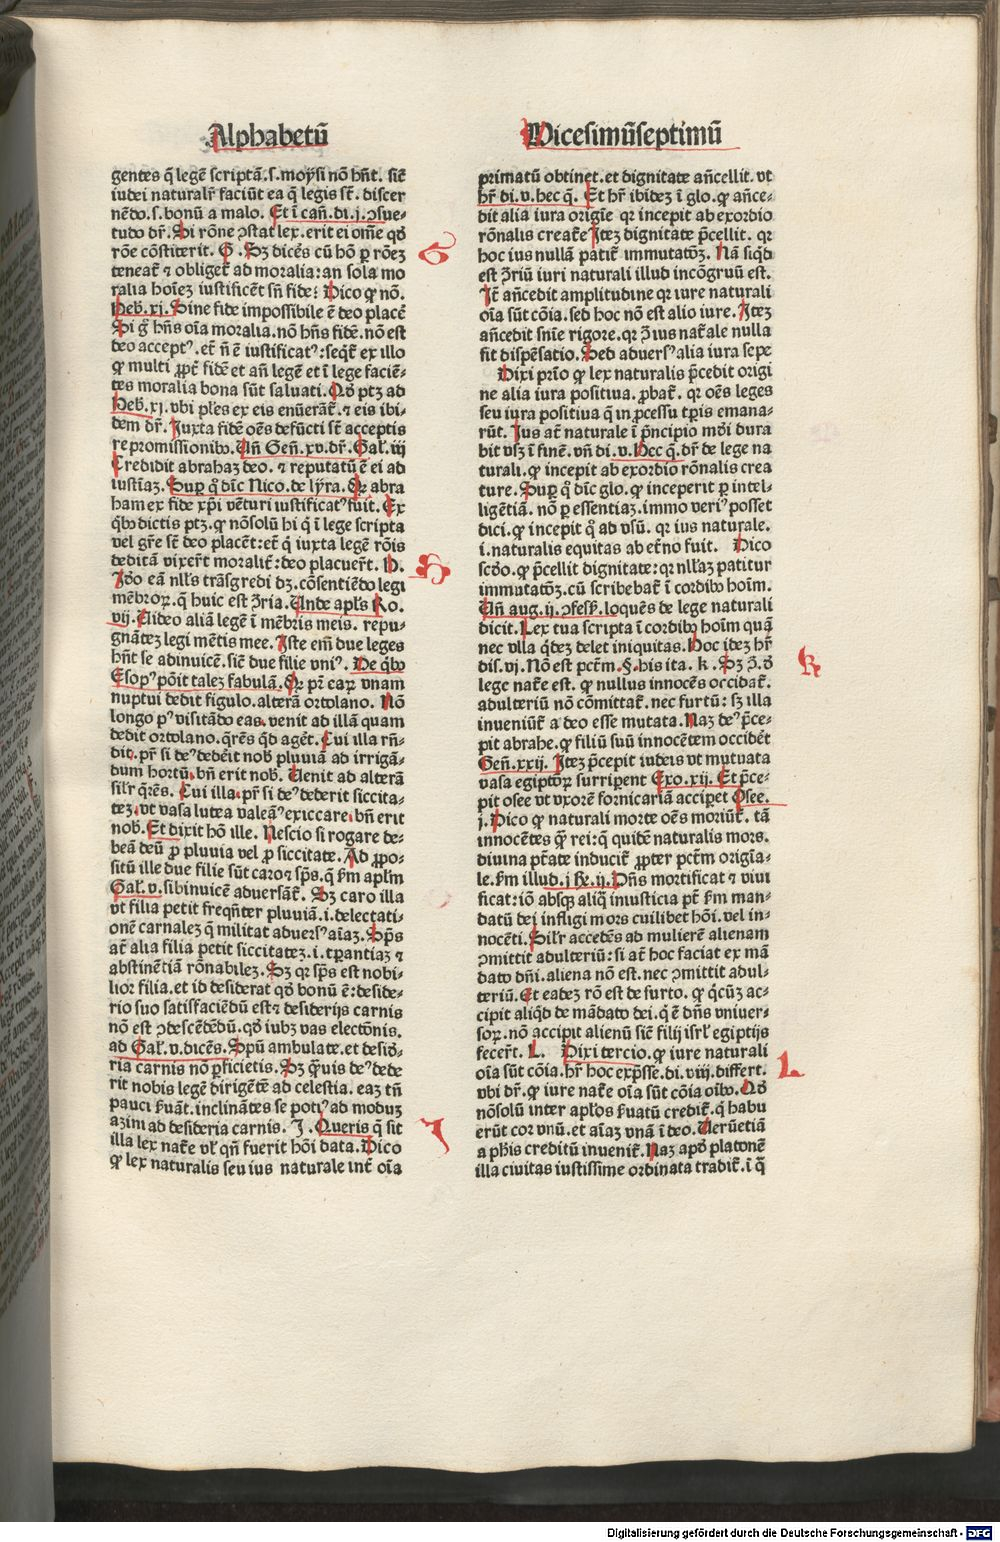 Alphabetū
Vicesimūseptimū
gentes q̄ legē scriptā.s.moysi nō hn̄t. sic̄
iudei naturalr̄ faciūt ea q̄ legis sc̄t. discer
nēdo.s.bonū a malo. Et ī cañ.di.j.ɔsue⸗
tudo dr̄. Si rōne ɔstat lex.erit ei om̄e qd̄
rōe cōstiterit. G. Sz dicēs cū hō ꝑ rōez
teneat̄ ⁊ obliget̄ ad moralia:an sola mo
ralia hoīez iustificēt sn̄ fide? Dico ꝙ nō.
Heb.xj. Sine fide impossibile ē deo placē
Si gͦ hn̄s oīa moralia.nō hn̄s fidē.nō est
deo acceptꝰ.et̄ n̄ ē iustificatꝰ:seqt̄ ex illo
ꝙ multi ꝓpt̄ fidē et an̄ legē et ī lege faciē⸗
tes moralia bona sūt saluati. Qd̄ ptz ad
Heb.xj.vbi ples ex eis enūerāt̄.⁊ eis ibi⸗
dem dr̄. Juxta fidē oēs defūcti sc̄t acceptis
repromissionibꝰ. Un̄ Gen̄.xv.dr̄. Gal̄.iij
Credidit abrahaz deo. ⁊ reputatū ē ei ad
iustīaz. Suꝑ qͦ dic̄ Nico.de lyra. Qꝛ abra
ham ex fide xp̄i vēturi iustificatꝰ fuit. Ex
qͥbꝰ dictis ptz.ꝙ nōsolū hi q̄ ī lege scripta
vel gr̄e sc̄t deo placēt:et̄ q̄ iuxta legē rōis
deditā vixer̄t moralit̄:deo placuer̄t. H.
Ideo eā nllꝰs trāsgredi dz.cōsentiēdo legi
mēbroꝝ.q̄ huic est ꝯ̄ria. Unde apl̄s Ro.
vij. Video aliā legē ī mēbris meis. repu⸗
gnātez legi mētis mee. Iste em̄ due leges
hn̄t se adinuicē.sic̄ due filie vniꝰ. De qͥbꝰ
Esopꝰ pōit talez fabulā. Qꝛ pr̄ eaꝝ vnam
nuptui dedit figulo.alterā ortolano. Nō
longo pꝰ visitādo eas.venit ad illā quam
dedit ortolano.qr̄ēs qd̄ aget̄. Cui illa rn̄⸗
dit.pr̄ si deꝰ dederit nob̄ pluviā ad irrigā⸗
dum hortū.bn̄ erit nob̄. Uenit ad alterā
silr̄ qr̄ēs. Cui illa.pr̄ si deꝰ dederit siccita⸗
tez.vt vasa lutea valeāꝰ exiccare.bn̄ erit
nob̄. Et dixit hō ille. Nescio si rogare de⸗
beā deū ꝓ pluvia vel ꝓ siccitate. Ad ꝓpo⸗
sitū ille due filie sūt caro⁊ sp̄s.q̄ ẜm apl̄m
Gal̄.v.sibinuicē adversāt̄. Sz caro illa
vt filia petit freqn̄ter pluviā.i.delectati⸗
onē carnalez q̄ militat adverſꝰ aīaz. Sp̄s
at̄ alia filia petit siccitatez.i.tꝑantiaz ⁊
abstinētiā rōnabilez. Sz qꝛ sp̄s est nobi⸗
lior filia.et id desiderat qd̄ bonū ē:deside⸗
rio suo satisfaciēdū est⁊ desiderijs carnis
nō est ɔdescēdēdū.qd̄ iubz vas electōnis.
ad Gal̄.v.dicēs. Spū ambulate.et desid̄⸗
ria carnis nō ꝑficietis. Sz qͣuis deꝰ dede
rit nobis legē dirigētē ad celestia. eaz tn̄
pauci ẜuāt.inclinātes se potiꝰ ad moduz
azini ad desideria carnis. J. Queris q̄ sit
illa lex nat̄e vl̄ qn̄ fuerit hōi data. Dico
ꝙ lex naturalis seu ius naturale int̄ oīa
primatū obtinet.et dignitate an̄cellit.vt
hr̄ di.v.hec q̄. Et hr̄ ibidez ī glo.ꝙ an̄ce⸗
dit alia iura origīe qꝛ incepit ab exordio
rōnalis creat̄e Itez dignitate p̄cellit. qꝛ
hoc ius nullā patit̄ immutatōz. Nā siqͥd
est ꝯ̄riū iuri naturali illud incōgruū est.
It̄ an̄cedit amplitudine qꝛ iure naturali
oīa sūt cōia.sed hoc nō est alio iure. Itez
an̄cedit sn̄ie rigore.qꝛ ꝯ̄ ius nat̄ale nulla
fit dispēsatio. Sed adversꝰ alia iura sepe
Dixi prīo ꝙ lex naturalis p̄cedit origi
ne alia iura positiua. ꝓbat̄. qꝛ oēs leges
seu iura positiua q̄ in ꝓcessu tꝑis emana⸗
rūt. Ius at̄ naturale ī p̄ncipio mūdi dura
bit vsqꝫ ī finē. vn̄ di.v. Hec q̄.dr̄ de lege na
turali.ꝙ incepit ab exordio rōnalis crea
ture. Suꝑ qͦ dic̄ glo.ꝙ inceperit ꝑ intel⸗
ligētiā. nō ꝑ essentiaz.immo veriꝰ posset
dici.ꝙ incepit qͦ ad vsū. qꝛ ius naturale.
i.naturalis equitas ab et̄no fuit. Dico
scd̄o.ꝙ p̄cellit dignitate:qꝛ nllaz patitur
immutatōz.cū scribebat̄ ī cordibꝰ hoīm.
Un̄ aug.ij.ɔfess̄. loquēs de lege naturali
dicit. Lex tua scripta ī cordibꝰ hoīm quā
nec vlla qͥdez delet iniquitas. Hoc idez hr̄
dis.vj. Nō est pctm̄.§.his ita. K. Sz ꝯ̄.d̄
lege nat̄e est. ꝙ nullus innocēs occidat̄.
adulteriū nō cōmittat̄.nec furtū: sz illa
inveniūt̄ a deo esse mutata. Naz deꝰ p̄ce⸗
pit abrahe.ꝙ filiū suū innocētem occidēt
Gen̄.xxij. Itez p̄cepit iudeis vt mutuata
vasa egiptioꝝ surriperent Exo.xij. Et p̄ce⸗
pit osee vt vxorē fornicariā acciꝑet Osee.
j. Dico ꝙ naturali morte oēs moriūt̄. tā
innocētes qͣ̄ rei:q̄ quidē naturalis mors.
divina ptāte inducit̄ ꝓpter pctm̄ origīa⸗
le.ẜm illud.j Re.ij. Dn̄s mortificat ⁊ vivi
ficat:iō absqꝫ aliq̄ iniusticia pt̄ ẜm man⸗
datū dei infligi mors cuilibet hōi.vel in⸗
nocēti. Silr̄ accedēs ad mulierē alienam
ɔmittit adulteriū: si at̄ hoc faciat ex mā
dato dn̄i.aliena nō est.nec ɔmittit adul⸗
teriū. Et eadez rō est de furto. ꝙ qͥcūz ac⸗
cipit aliqͥd de mādato dei.q̄ ē dn̄s vniver⸗
soꝝ.nō accipit alienū sic̄ filij isrl̄ egiptijs
fecer̄t. L. Dixi tercio.ꝙ iure naturali
oīa sūt cōia.hr̄ hoc exp̄sse.di.viij.differt.
vbi dr̄.ꝙ iure nat̄e oīa sūt cōia oībꝰ. Qd̄
nōsolū inter apl̄os ẜuatū credit̄.q̄ habu
erūt cor vnū.et aīaz vnā ī deo. Uerūetiā
a ph̄is creditū invenit̄. Naz apd̄ platonē
illa civitas iustissime ordinata tradit̄.ī q̄
G
H
J
K
L
Digitalisierung gefördert durch die Deutsche Forschungsgemeinschaft - DFG